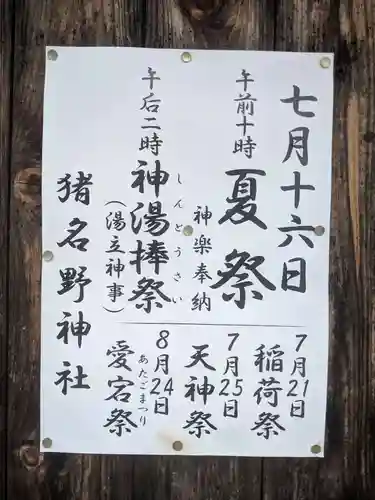 七月十六日
午前十時
夏祭
神楽奉納
午后二時
神湯捧祭
しんとうさい
(湯立神事)
7月21日
稲荷祭
7月25日
天神祭
8月24日
あたごまつり
愛宕祭
猪名野神社